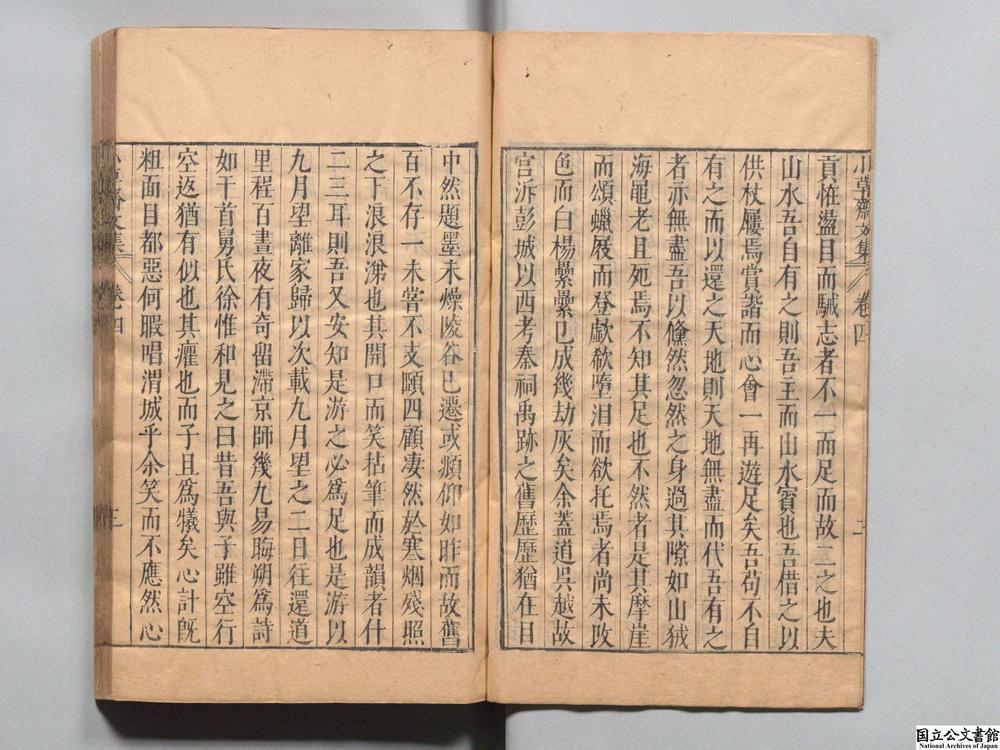 小草齋文集 卷四 二
貢惟盪目而馘志者不一而足而故二之也夫
山水吾自有之則吾主而山水賓也吾借之以
供杖屨焉賞諧而心會一再遊足矣吾苟不自
有之而以還之天地則天地無盡而代吾有之
者亦無盡吾以儵然忽然之身過其隙如山狨
海黽老且死焉不知其足也不然者是其摩崖
而頌蠟屐而登歔欷墮淚而欲托焉者尚未改
色而白楊纍纍已成幾劫灰矣余蓋道吳越故
宮泝彭城以西考秦祠禹跡之舊歷歷猶在目
中然題墨未燥陵谷已遷或頫仰如昨而故舊
百不存一未甞不支頤四顧凄然於寒烟殘照
之下浪浪涕也其開口而笑拈筆而成韻者什
二三耳則吾又安知是游之必為足也是游以
九月望離家歸以次載九月望之二日往還道
里程百晝夜有奇留滯京師幾九易晦朔為詩
如干首舅氏徐惟和見之曰昔吾與子雖空行
空返猶有似也其癯也而子且為犧矣心計既
粗面目都惡何暇唱渭城乎余笑而不應然心
小草齋文集 卷四 三
国立公文書館
National Archives of Japan